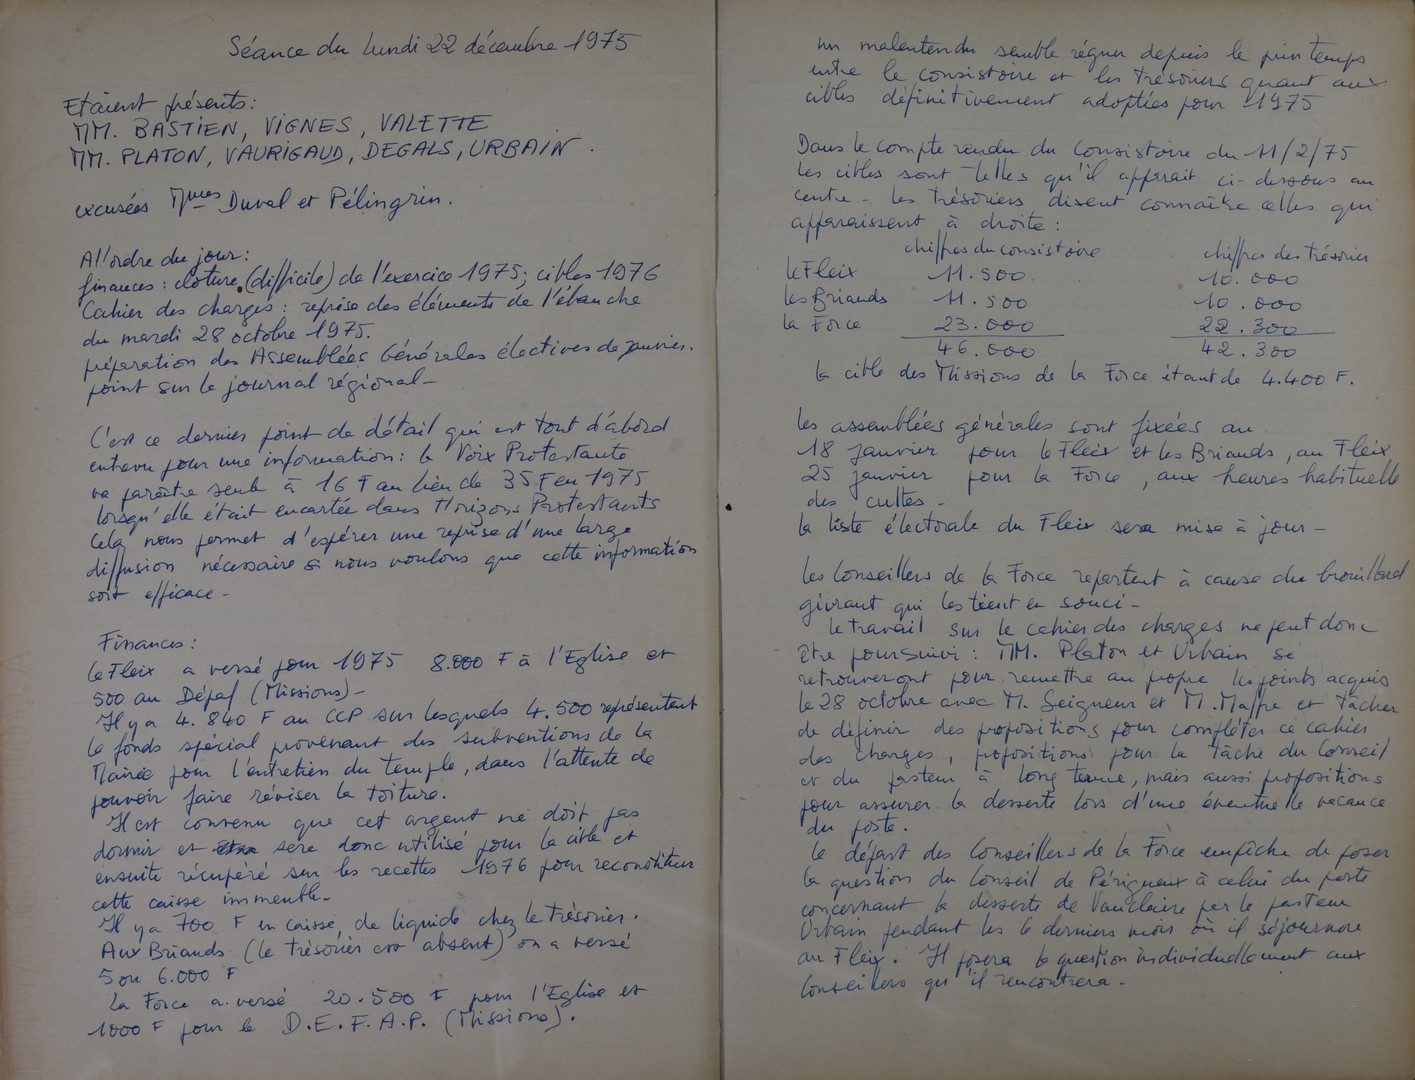 Séance du Lundi 22 décembre 1975
Etaient présents:
MM. BASTIEN, VIGNES, VALETTE
MM. PLATON, VAURIGAUD, DEGALS, URBAIN.
excusées Mmes Duval et Pélingrin.
A l'ordre du jour:
finances: cloture (difficile) de l'exercice 1975; cibles 1976
Cahier des charges: reprise des éléments de l'ébauche
du mardi 28 octobre 1975.
préparation des Assemblées Générales électives de janvier.
point sur le journal régional-
C'est ce dernier point de détail qui est tout d'abord
entrevu pour une information: la Voix Protestante
va paraître seule à 16 F au lieu de 35 F en 1975
lorsqu'elle était encartée dans Horizons Protestants
Cela nous permet d'espérer une reprise d'une large
diffusion nécessaire si nous voulons que cette information
soit efficace-
Finances:
Le Fleix a versé pour 1975 8.000 F à l'Eglise et
500 au Défap (Missions)-
Il y a 4.840 F au CCP sur lesquels 4.500 représentent
le fonds spécial provenant des subventions de la
Mairie pour l'entretien du temple, dans l'attente de
pouvoir faire réviser la toiture.
Il est convenu que cet argent ne doit pas
dormir et sera donc utilisé pour la cible et
ensuite récupéré sur les recettes 1976 pour reconstituer
cette caisse immeuble-
Il y a 700 F en caisse, de liquide chez le trésorier.
Aux Briands (le trésorier est absent) on a versé
5 ou 6.000 F
La Force a versé 20.500 F pour l'Eglise et
1000 F pour le D.E.F.A.P. (Missions).
un malentendu semble régner depuis le printemps
entre le consistoire et les trésoriers quant aux
cibles définitivement adoptées pour 1975
Dans le compte rendu du Consistoire du 11/2/75
les cibles sont telles qu'il apparait ci-dessous au
centre - les trésoriers disent connaître celles qui
apparaissent à droite:
chiffres du consistoire chiffres des trésoriers
le Fleix 11.500 10.000
les Briands 11.500 10.000
la Force 23.000 22.300
46.000 42.300
la cible des Missions de la Force étant de 4.400 F.
les assemblées générales sont fixées au
18 janvier pour le Fleix et les Briands, au Fleix
25 janvier pour la Force, aux heures habituelles
des cultes-
la liste électorale du Fleix sera mise à jour-
Les Conseillers de la Force repartent à cause du brouillard
givrant qui les tient en souci-
le travail sur le cahier des charges ne peut donc
être poursuivi: MM. Platon et Urbain se
retrouveront pour remettre au propre les points acquis
le 28 octobre avec M. Seigneur et M. Maffre et tâcher
de définir des propositions pour compléter ce cahier
des charges, propositions pour la tâche du Conseil
et du pasteur à long terme, mais aussi propositions
pour assurer la desserte lors d'une éventuelle vacance
du poste.
Le départ des Conseillers de la Force empêche de poser
la question du Conseil de Périgueux à celui du poste
concernant la desserte de Vauclaire par le pasteur
Urbain pendant les 6 derniers mois où il séjournera
au Fleix. Il posera la question individuellement aux
Conseillers qu'il rencontrera.